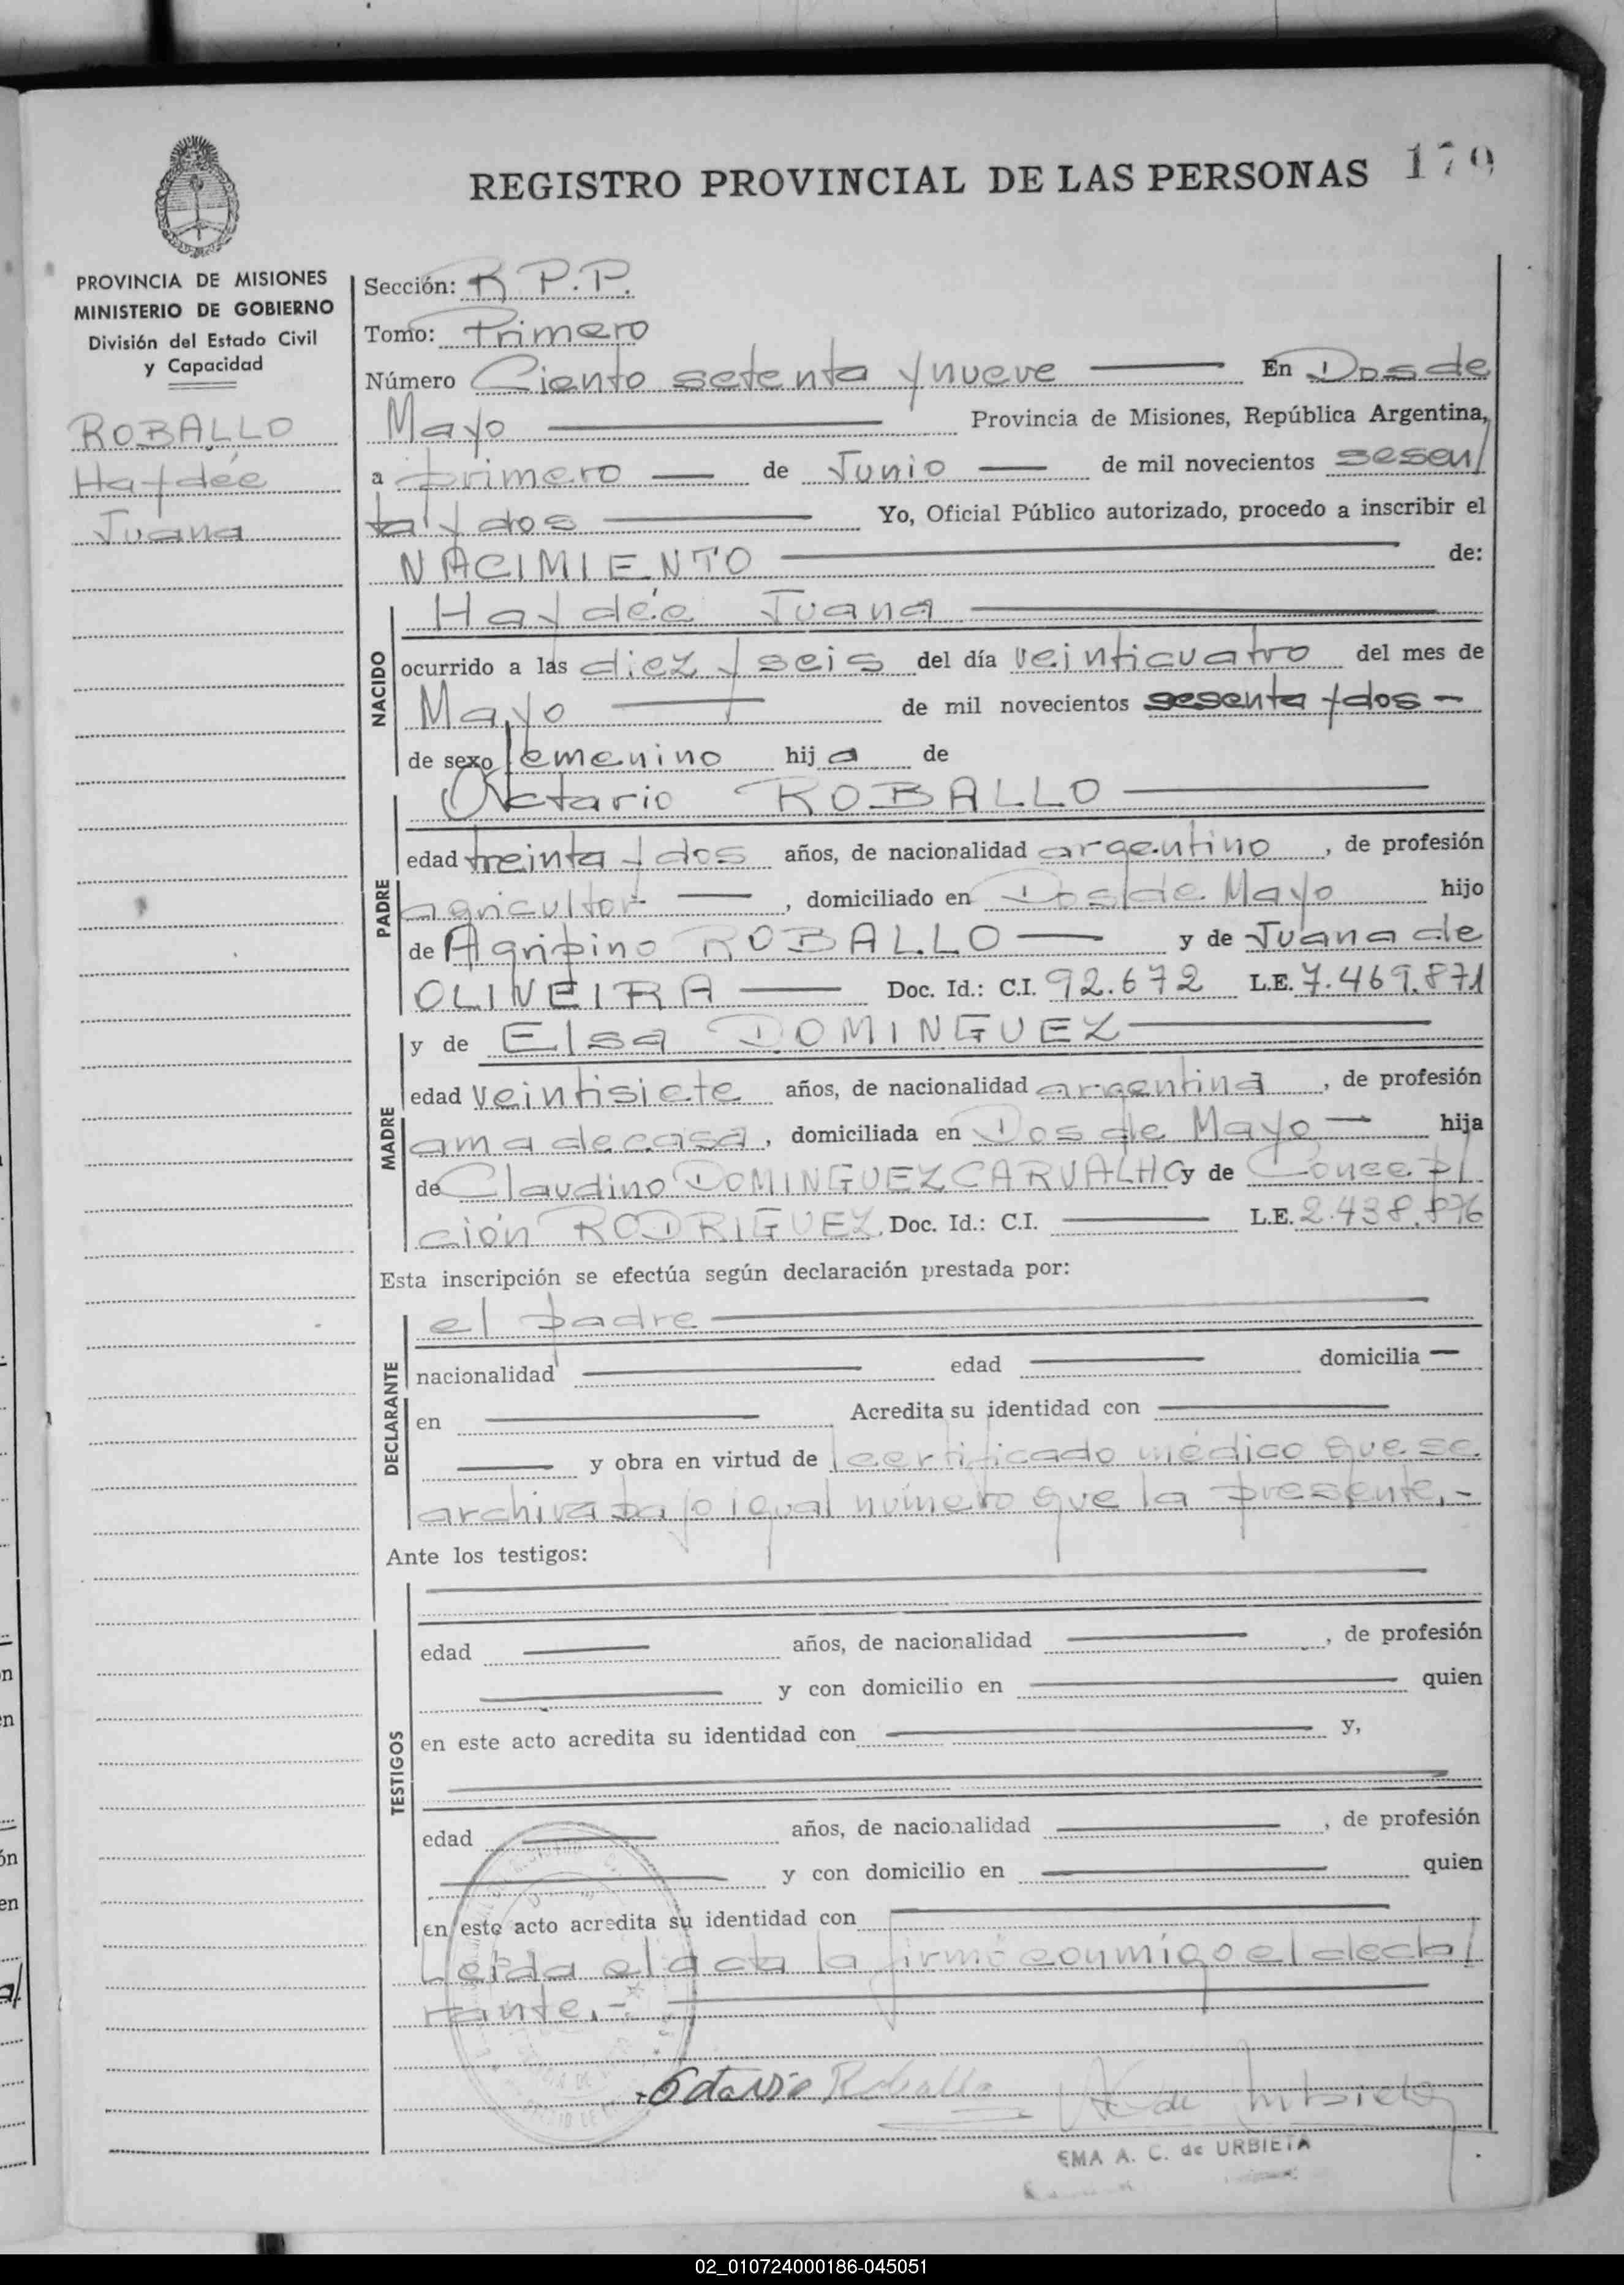 REGISTRO PROVINCIAL DE LAS PERSONAS 179
PROVINCIA DE MISIONES
MINISTERIO DE GOBIERNO
División del Estado Civil
y Capacidad
ROBALLO
Haydée
Juana
Sección: R.P.P.
Tomo: Primero
Número Ciento setenta y nueve En Dos de
Mayo Provincia de Misiones, República Argentina,
a primero de Junio de mil novecientos sesen/
ta y dos Yo, Oficial Público autorizado, procedo a inscribir el
NACIMIENTO de:
NACIDO
Haydée Juana
ocurrido a las diez y seis del día veinticuatro del mes de
Mayo de mil novecientos sesenta y dos -
de sexo femenino hija de
PADRE
Octario ROBALLO
edad treinta y dos años, de nacionalidad argentino, de profesión
agricultor, domiciliado en Dos de Mayo hijo
de Agripino ROBALLO y de Juana de
OLIVEIRA Doc. Id.: C.I. 92.672 L.E. 7.469.871
MADRE
y de Elsa DOMINGUEZ
edad veintisiete años, de nacionalidad argentina, de profesión
ama de casa, domiciliada en Dos de Mayo hija
de Claudino DOMINGUEZ CARVALHO y de Concep/
ción RODRIGUEZ. Doc. Id.: C.I. L.E. 2.438.896
Esta inscripción se efectúa según declaración prestada por:
DECLARANTE
el padre
nacionalidad edad domicilia
en Acredita su identidad con
y obra en virtud de certificado médico que se
archiva bajo igual número que la presente.-
Ante los testigos:
TESTIGOS
edad años, de nacionalidad, de profesión
y con domicilio en quien
en este acto acredita su identidad con y,
edad años, de nacionalidad, de profesión
y con domicilio en quien
en este acto acredita su identidad con
Leída el acta la firmó conmigo el decla/
rante.-
Octavio Roballo de Urbieta
EMA A. C. de URBIETA
02_010724000186-045051